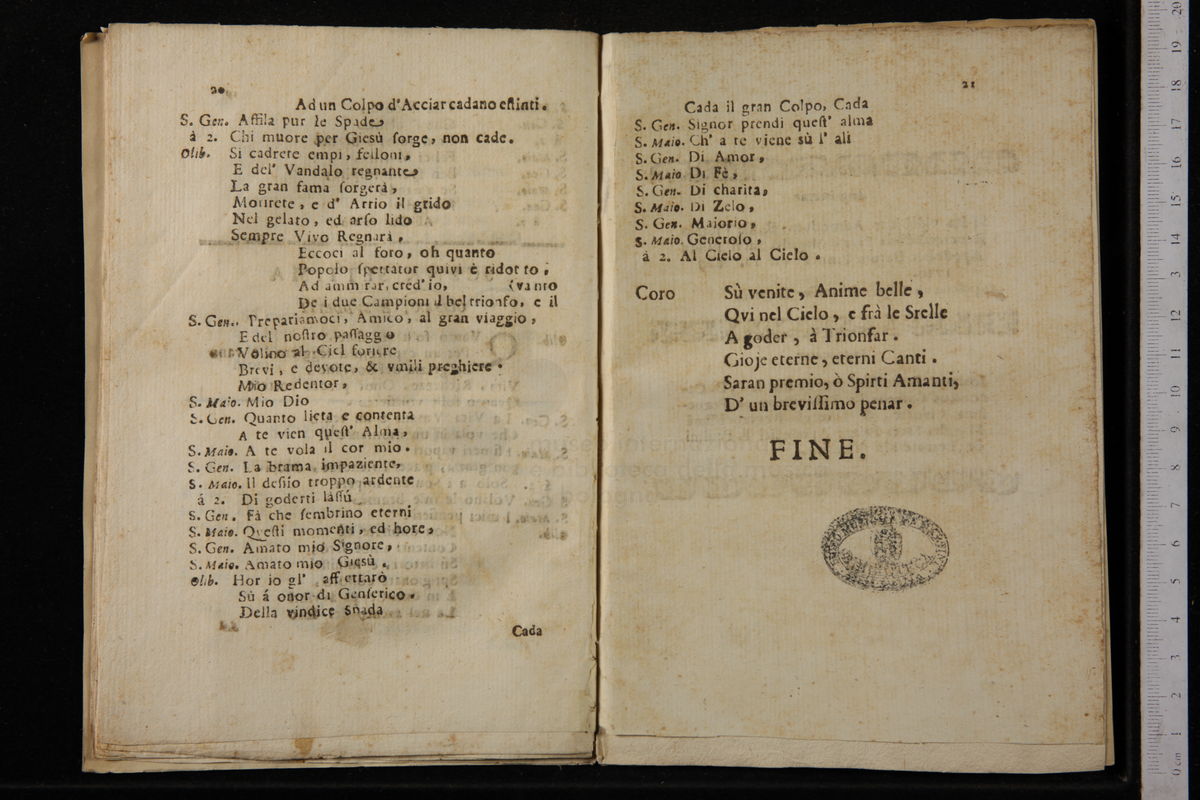 20
Ad un Colpo d'Acciar cadano eſtinti.
S. Gen. Affila pur le Spade
à 2. Chi muore per Giesù ſorge, non cade.
Olib. Si cadrete empi, felloni,
E del' Vandalo regnante
La gran fama ſorgerà,
Mourete, e d' Arrio il grido
Nel gelato, ed arſo lido
Sempre Vivo Regnarà,
Eccoci al foro, oh quanto
Popolo ſpettator quivi è ridotto;
Ad ammirar, cred' io, (vanto
De i due Campioni il bel trionfo, e il
S. Gen. Prepariamoci, Amico, al gran viaggio,
E del noſtro paſſaggo
Volino al Ciel foriere
Brevi, e devote, & vmili preghiere.
Mio Redentor,
S. Maio. Mio Dio
S. Gen. Quanto lieta e contenta
A te vien queſt' Alma,
S. Maio. A te vola il cor mio.
S. Gen. La brama impaziente,
S. Maio. Il deſiio troppo ardente
á 2. Di goderti laſſú
S. Gen. Fà che ſembrino eterni
S. Maio. Queſti momenti, ed hore,
S. Gen. Amato mio Signore,
S. Maio. Amato mio Giesù.
Olib. Hor io gl' aff ettarò
Sù á onor di Genſerico.
Della vindice Spada
Cada
21
Cada il gran Colpo, Cada
S. Gen. Signor prendi queſt' alma
S. Maio. Ch' a te viene sù l' ali
S. Gen. Di Amor,
S. Maio Di Fè,
S. Gen. Di charita,
S. Maio. Di Zelo,
S. Gen. Maiorio,
S. Maio. Generoſo,
à 2. Al Cielo al Cielo.
Coro Sù venite, Anime belle,
Qvi nel Cielo, e frà le Srelle
A goder, à Trionfar.
Gioje eterne, eterni Canti.
Saran premio, ò Spirti Amanti,
D' un breviſſimo penar.
FINE.